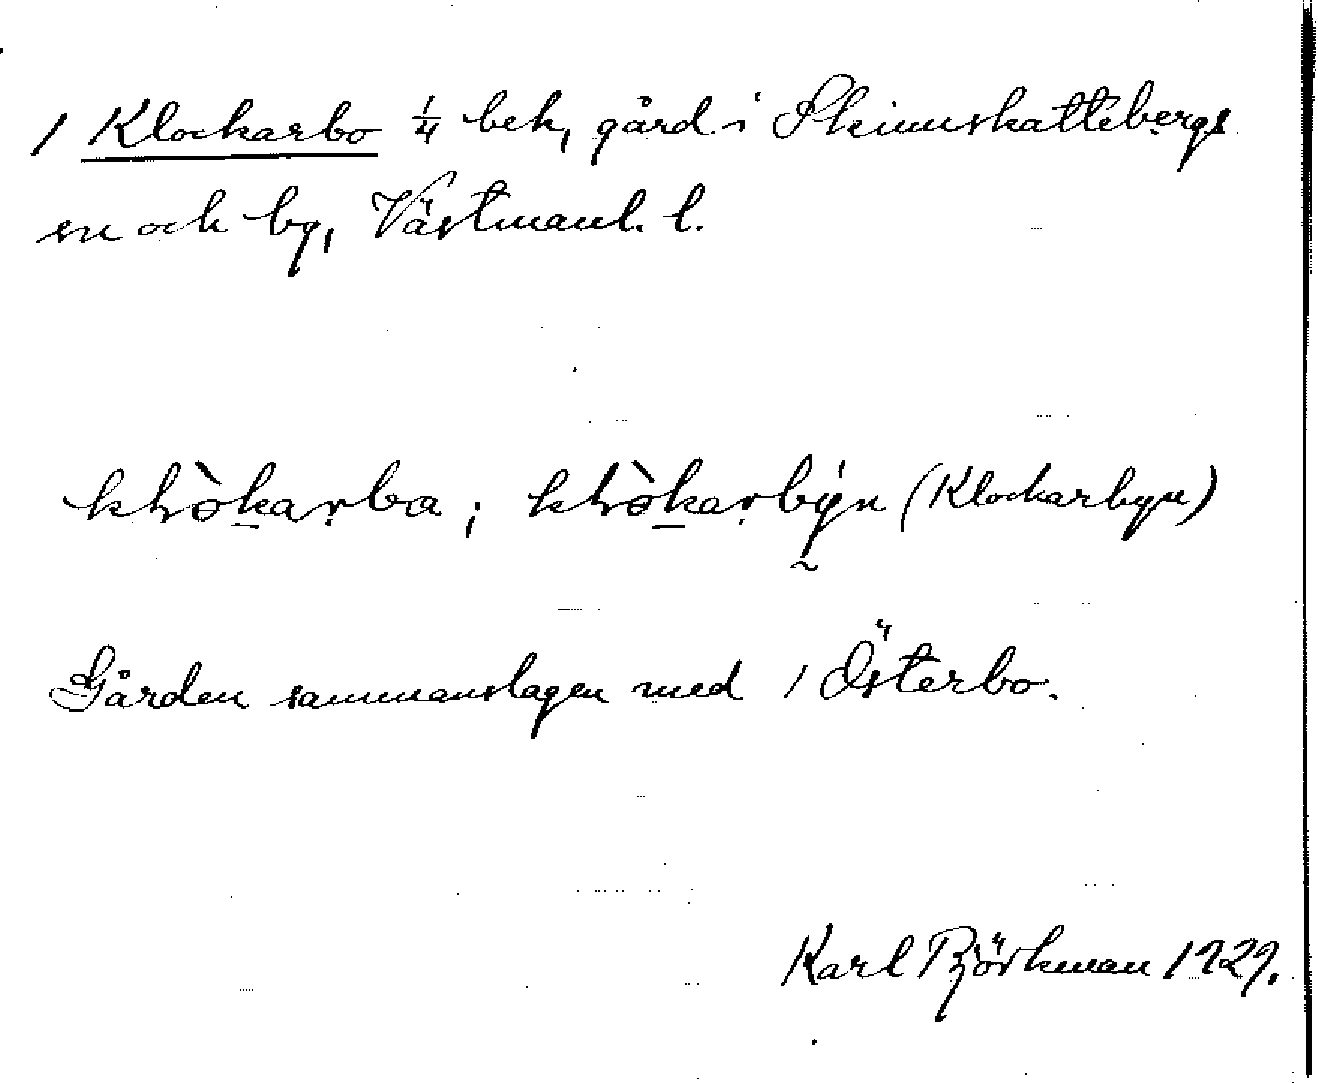 1 Klockarbo ¼ bek, gård i Skinnskattebergs
sn och bg, Västmanl. l.
khòkarba ; khòkarbýn (Klockarbyn)
Gården sammanslagen med 1 Österbo.
Karl Björkman 1929.